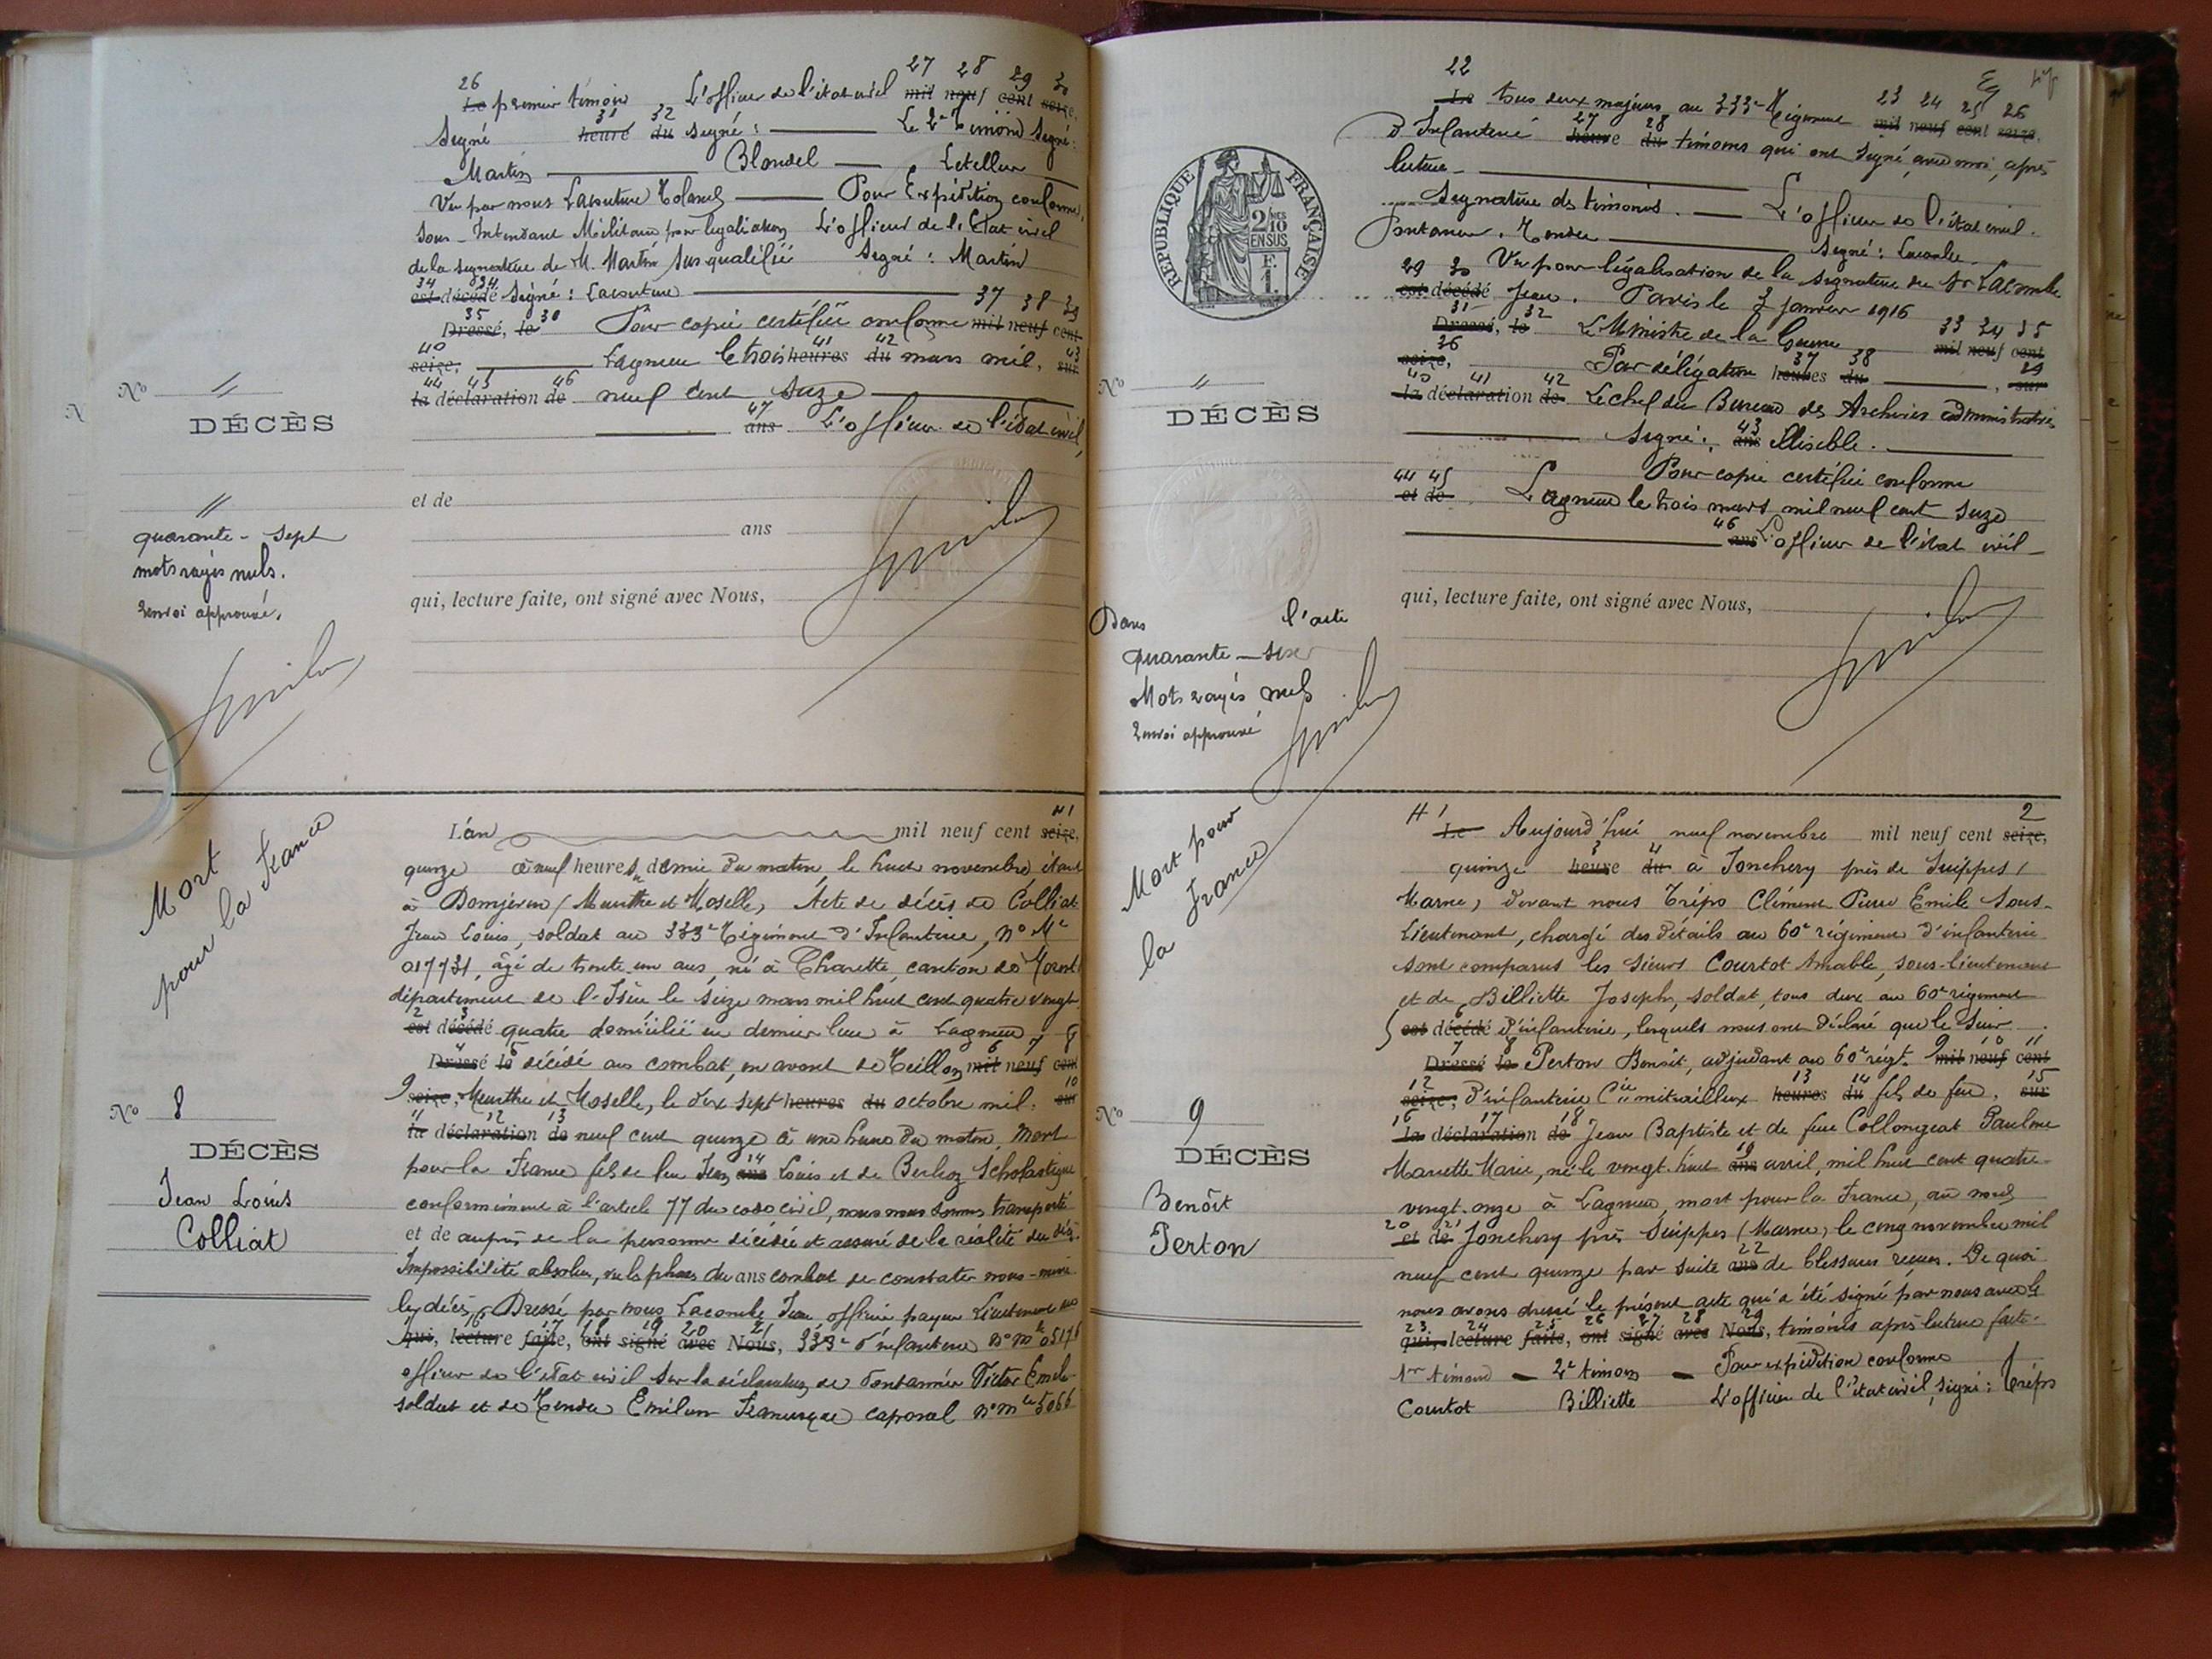 26 27 28 29 30
Le premier témoin L'officier de l'état civil mil neuf cent seize,
31 32
Signé heure du signé : Le 2e Témoin signé :
Martin Blondel Letellier
Vu par nous Pour Expédition conforme,
Sous-Intendant Militaire pour légalisation L'officier de l'Etat civil
de la signature de M. Martin sus qualifié Signé : Martin
34 37 38 39
est décédé Signé :
35 36
Dressé, le Pour copie certifiée conforme mil neuf cent
40 41 42 43
seize, Lagnieu le trois heures du mars mil, sur
44 45 46
la déclaration de neuf cent seize
47
ans L'officier de l'état civil,
N° //
DÉCÈS
//
quarante-sept
mots rayés nuls.
Renvoi approuvé.
et de
ans
qui, lecture faite, ont signé avec Nous,
Mort
pour la France
N° 8
DÉCÈS
Jean Louis
Colliat
L'an mil neuf cent seize,
quinze à neuf heures demie du matin, le huit novembre, étant
à Domjevin (Meurthe et Moselle, Acte de décès de Colliat
Jean Louis, soldat au 333e Régiment d'Infanterie, N° Mle
017731, âgé de trente un ans, né à Charette, canton de Morestel
département de l'Isère le seize mars mil huit cent quatre vingt
2 3
est décédé quatre domicilié en dernier lieu à Lagnieu,
4 5 6 7 8
Dressé le décédé au combat, en avant de Reillon mil neuf cent
9 10
seize, Meurthe et Moselle, le dix sept heures du octobre mil, sur
11 12 13
la déclaration de neuf cent quinze à une heure du matin, Mort
14
pour la France fils de feu Jean ans Louis et de Berlioz Scholastique
conformément à l'article 77 du code civil, nous nous sommes transporté
et de auprès de la personne décédée et assuré de la réalité du décès
Impossibilité absolue, vu les phases du ans combat de constater nous-même
le décès. Dressé par nous Lacombe Jean officier payeur Lieutenant au
16 17 18 19 20 21
qui, lecture faite, ont signé avec Nous, 333e d'infanterie N° mle 05176
officier de l'état civil sur la déclaration de Fontannier Victor Emile
soldat et de Caporal N° mle 5066
22
Le tous deux majeurs au 333e Régiment mil neuf cent seize,
23 24 25 26
27 28
D'Infanterie heure du témoins qui ont signé avec moi, après
lecture
Signature des témoins. L'officier de l'état civil.
Signé : Lacombe
Vu pour légalisation de la signature du Sr Lacombe
29 30
est décédé Jean. Paris le 3 janvier 1916
31 32 33 34 35
Dressé, le Le Ministre de la Guerre mil neuf cent
36 37 38 39
seize, Par délégation heures du, sur
40 41 42
la déclaration de Le chef du Bureau des Archives administratives
43
Signé : ans illisible.
Pour copie certifiée conforme
44 45
et de Lagnieu le trois mars mil neuf cent seize
46
ans L'officier de l'état civil
qui, lecture faite, ont signé avec Nous,
RÉPUBLIQUE FRANÇAISE
2/10 EN SUS
F. 1.
N° //
DÉCÈS
Dans l'acte
quarante-six
Mots rayés nuls
Renvoi approuvé
Mort pour
la France
N° 9
DÉCÈS
Benoît
Perton
1 2
Le Aujourd'hui neuf novembre mil neuf cent seize,
3 4
quinze heure du à Jonchery près de Suippes (
Marne) devant nous Trépo Clément Pierre Emile Sous-
Lieutenant, chargé des détails au 60e régiment d'infanterie
sont comparus les sieurs Courtot Amable, sous-lieutenant
et de Billiette Joseph, soldat, tous deux au 60e régiment
5 6
est décédé d'infanterie, lesquels nous ont déclaré que le sieur
7 8 9 10 11
Dressé le Perton Benoît, adjudant au 60e régt mil neuf cent
12 13 14 15
seize, d'infanterie Cie mitrailleux heures du fils de feu, sur
16 17 18
la déclaration de Jean Baptiste et de feue Collongeat Pauline
19
Mariette Marie, né le vingt-huit ans avril, mil huit cent quatre
vingt-onze à Lagnieu, mort pour la France, au nord
20 21
et de Jonchery près Suippes (Marne) le cinq novembre mil
22
neuf cent quinze par suite ans de blessures reçues. De quoi
nous avons dressé le présent acte qui a été signé par nous avec les
23 24 25 26 27 28 29
qui, lecture faite, ont signé avec Nous, témoins après lecture faite.
1er témoin — 2e témoin — Pour expédition conforme
Courtot Billiette L'officier de l'état civil, signé : Trépo